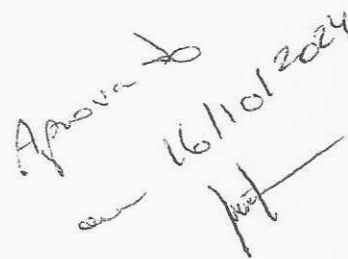 Aprovado
em 16/10/2024